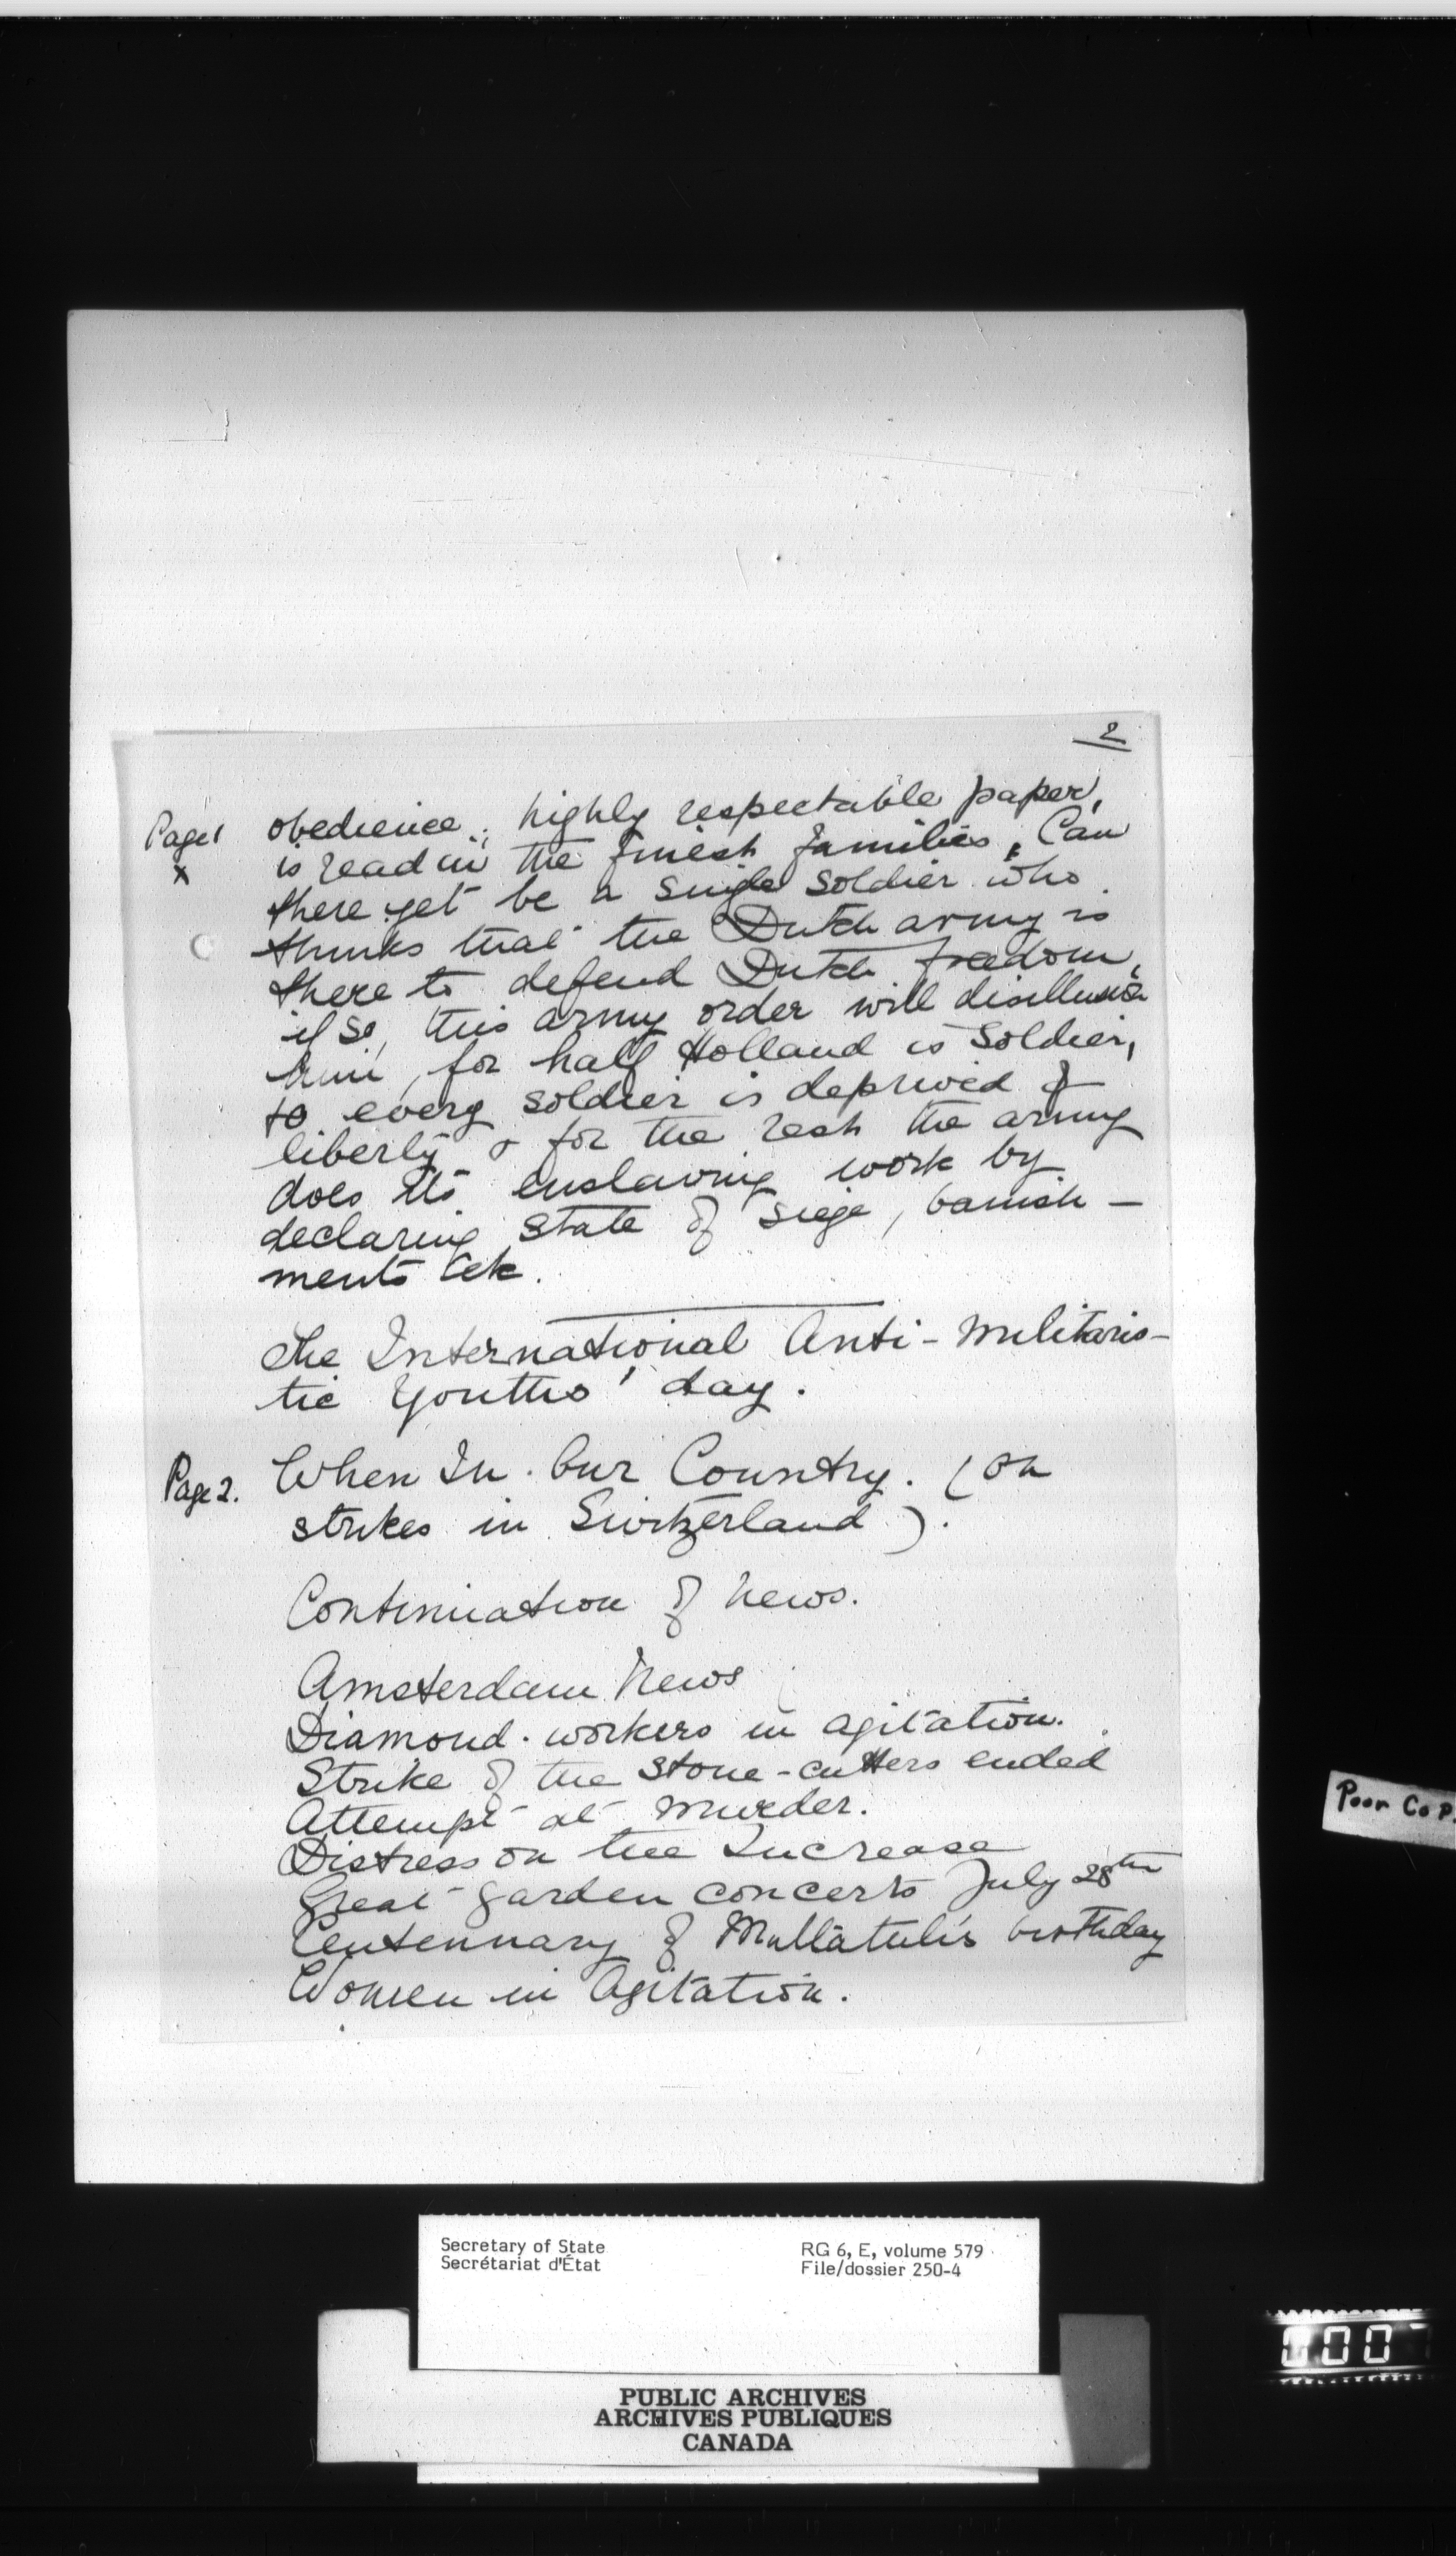 2
Page 1 obedience; highly respectable paper,
x is read in the finest families. Can
there yet be a single soldier who
thinks that the Dutch army is
there to defend Dutch freedom,
if so, this army order will disillusion
him, for half Holland is soldier,
to every soldier is deprived of
liberty & for the rest the army
does its enslaving work by
declaring state of siege, banish-
ments etc.
The International Anti-Militaris-
tic Youths' day.
Page 2. When In Our Country. (on
strikes in Switzerland).
Continuation of news.
Amsterdam News
Diamond-workers in agitation.
Strike of the stone-cutters ended
Attempt at murder.
Distress on the Increase
Great garden concerts July 28th
Centennary of Multatuli's birthday
Women in Agitation.
Poor Cop
Secretary of State
Secrétariat d'État
RG 6, E, volume 579
File/dossier 250-4
PUBLIC ARCHIVES
ARCHIVES PUBLIQUES
CANADA
000